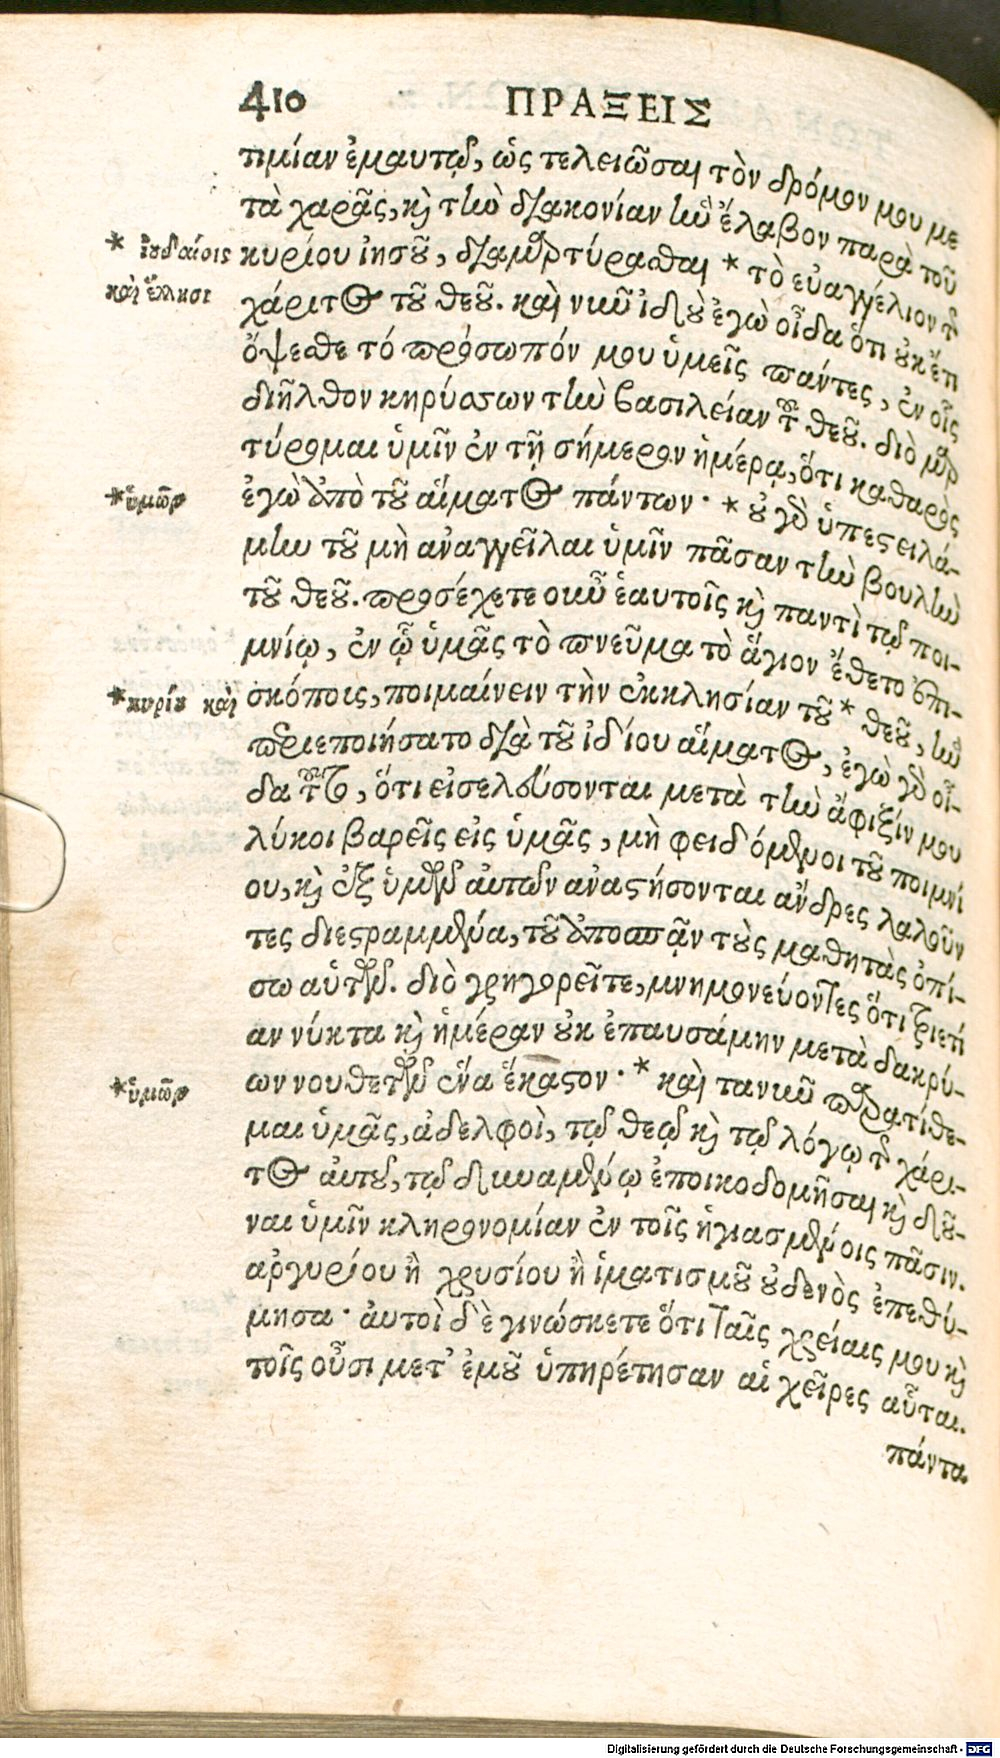 410 ΠΡΑΞΕΙΣ
τιμίαν ἐμαυτῷ, ὡς τελειῶσαι τὸν δρόμον μου με
τὰ χαρᾶς, καὶ τὴν διακονίαν ἣν ἔλαβον παρὰ τοῦ
* ἰουδαίοις
καὶ ἕλλησι
κυρίου ἰησοῦ, διαμαρτύρασθαι * τὸ εὐαγγέλιον τῆς
χάριτος τοῦ θεοῦ. καὶ νῦν ἰδοὺ ἐγὼ οἶδα ὅτι οὐκ ἔτι
ὄψεσθε τό πρόσωπόν μου ὑμεῖς πάντες, ἐν οἷς
διῆλθον κηρύσσων τὴν βασιλείαν τοῦ θεοῦ. διὸ μαρ
τύρομαι ὑμῖν ἐν τῇ σήμερον ἡμέρᾳ, ὅτι καθαρὸς
* ὑμῶν
ἐγὼ ἀπὸ τοῦ αἵματος πάντων· * οὐ γὰρ ὑπεστειλά-
μην τοῦ μὴ ἀναγγεῖλαι ὑμῖν πᾶσαν τὴν βουλὴν
τοῦ θεοῦ. προσέχετε οὖν ἑαυτοῖς καὶ παντὶ τῷ ποι-
μνίῳ, ἐν ᾧ ὑμᾶς τὸ πνεῦμα τὸ ἅγιον ἔθετο ἐπι-
* κυρίου καὶ
σκόποις, ποιμαίνειν τὴν ἐκκλησίαν τοῦ * θεοῦ, ἣν
περιεποιήσατο διὰ τοῦ ἰδίου αἵματος, ἐγὼ γὰρ οἶ-
δα τοῦτο, ὅτι εἰσελεύσονται μετὰ τὴν ἄφιξίν μου
λύκοι βαρεῖς εἰς ὑμᾶς, μὴ φειδόμενοι τοῦ ποιμνί
ου, καὶ ἐξ ὑμῶν αὐτῶν ἀναστήσονται ἄνδρες λαλοῦν
τες διεστραμμένα, τοῦ ἀποσπᾷν τοὺς μαθητὰς ὀπί-
σω αὑτῶν. διὸ γρηγορεῖτε, μνημονεύοντες ὅτι τριετί
αν νύκτα καὶ ἡμέραν οὐκ ἐπαυσάμην μετὰ δακρύ-
* ὑμῶν
ων νουθετῶν ἕνα ἕκαστον· * καὶ τανῦν παρατίθε-
μαι ὑμᾶς, ἀδελφοὶ, τῷ θεῷ καὶ τῷ λόγῳ τῆς χάρι-
τος αὐτοῦ, τῷ δυναμένῳ ἐποικοδομῆσαι καὶ δοῦ-
ναι ὑμῖν κληρονομίαν ἐν τοῖς ἡγιασμένοις πᾶσιν.
ἀργυρίου ἢ χρυσίου ἢ ἱματισμοῦ οὐδενὸς ἐπεθύ-
μησα· αὐτοὶ δὲ γινώσκετε ὅτι ταῖς χρείαις μου καὶ
τοῖς οὖσι μετ' ἐμοῦ ὑπηρέτησαν αἱ χεῖρες αὗται.
πάντα
Digitalisierung gefördert durch die Deutsche Forschungsgemeinschaft - DFG